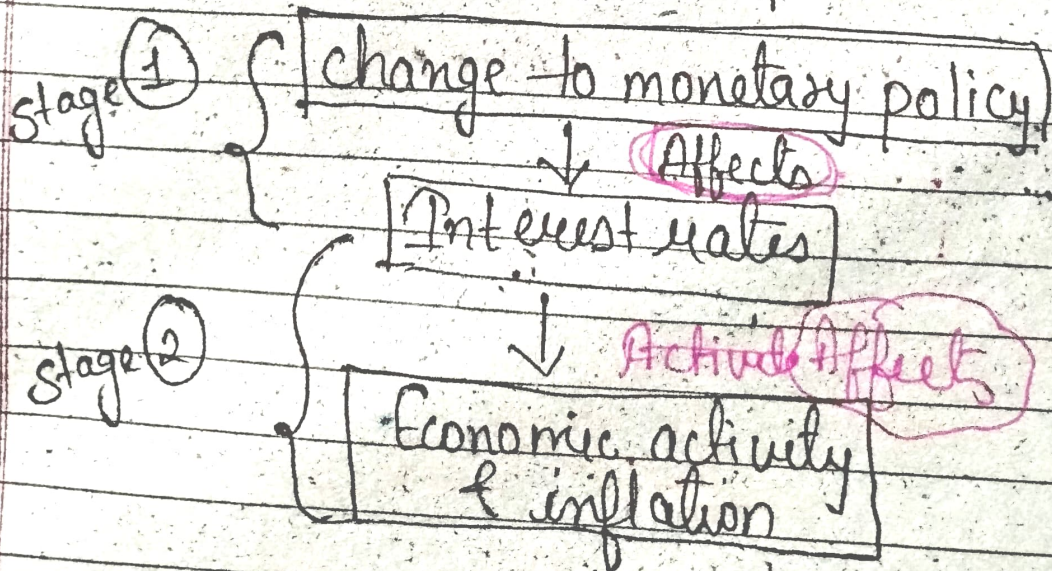 Stage 1
Change to monetary policy
Affects
Interest rates
Stage 2
Affects
Economic activity
& inflation